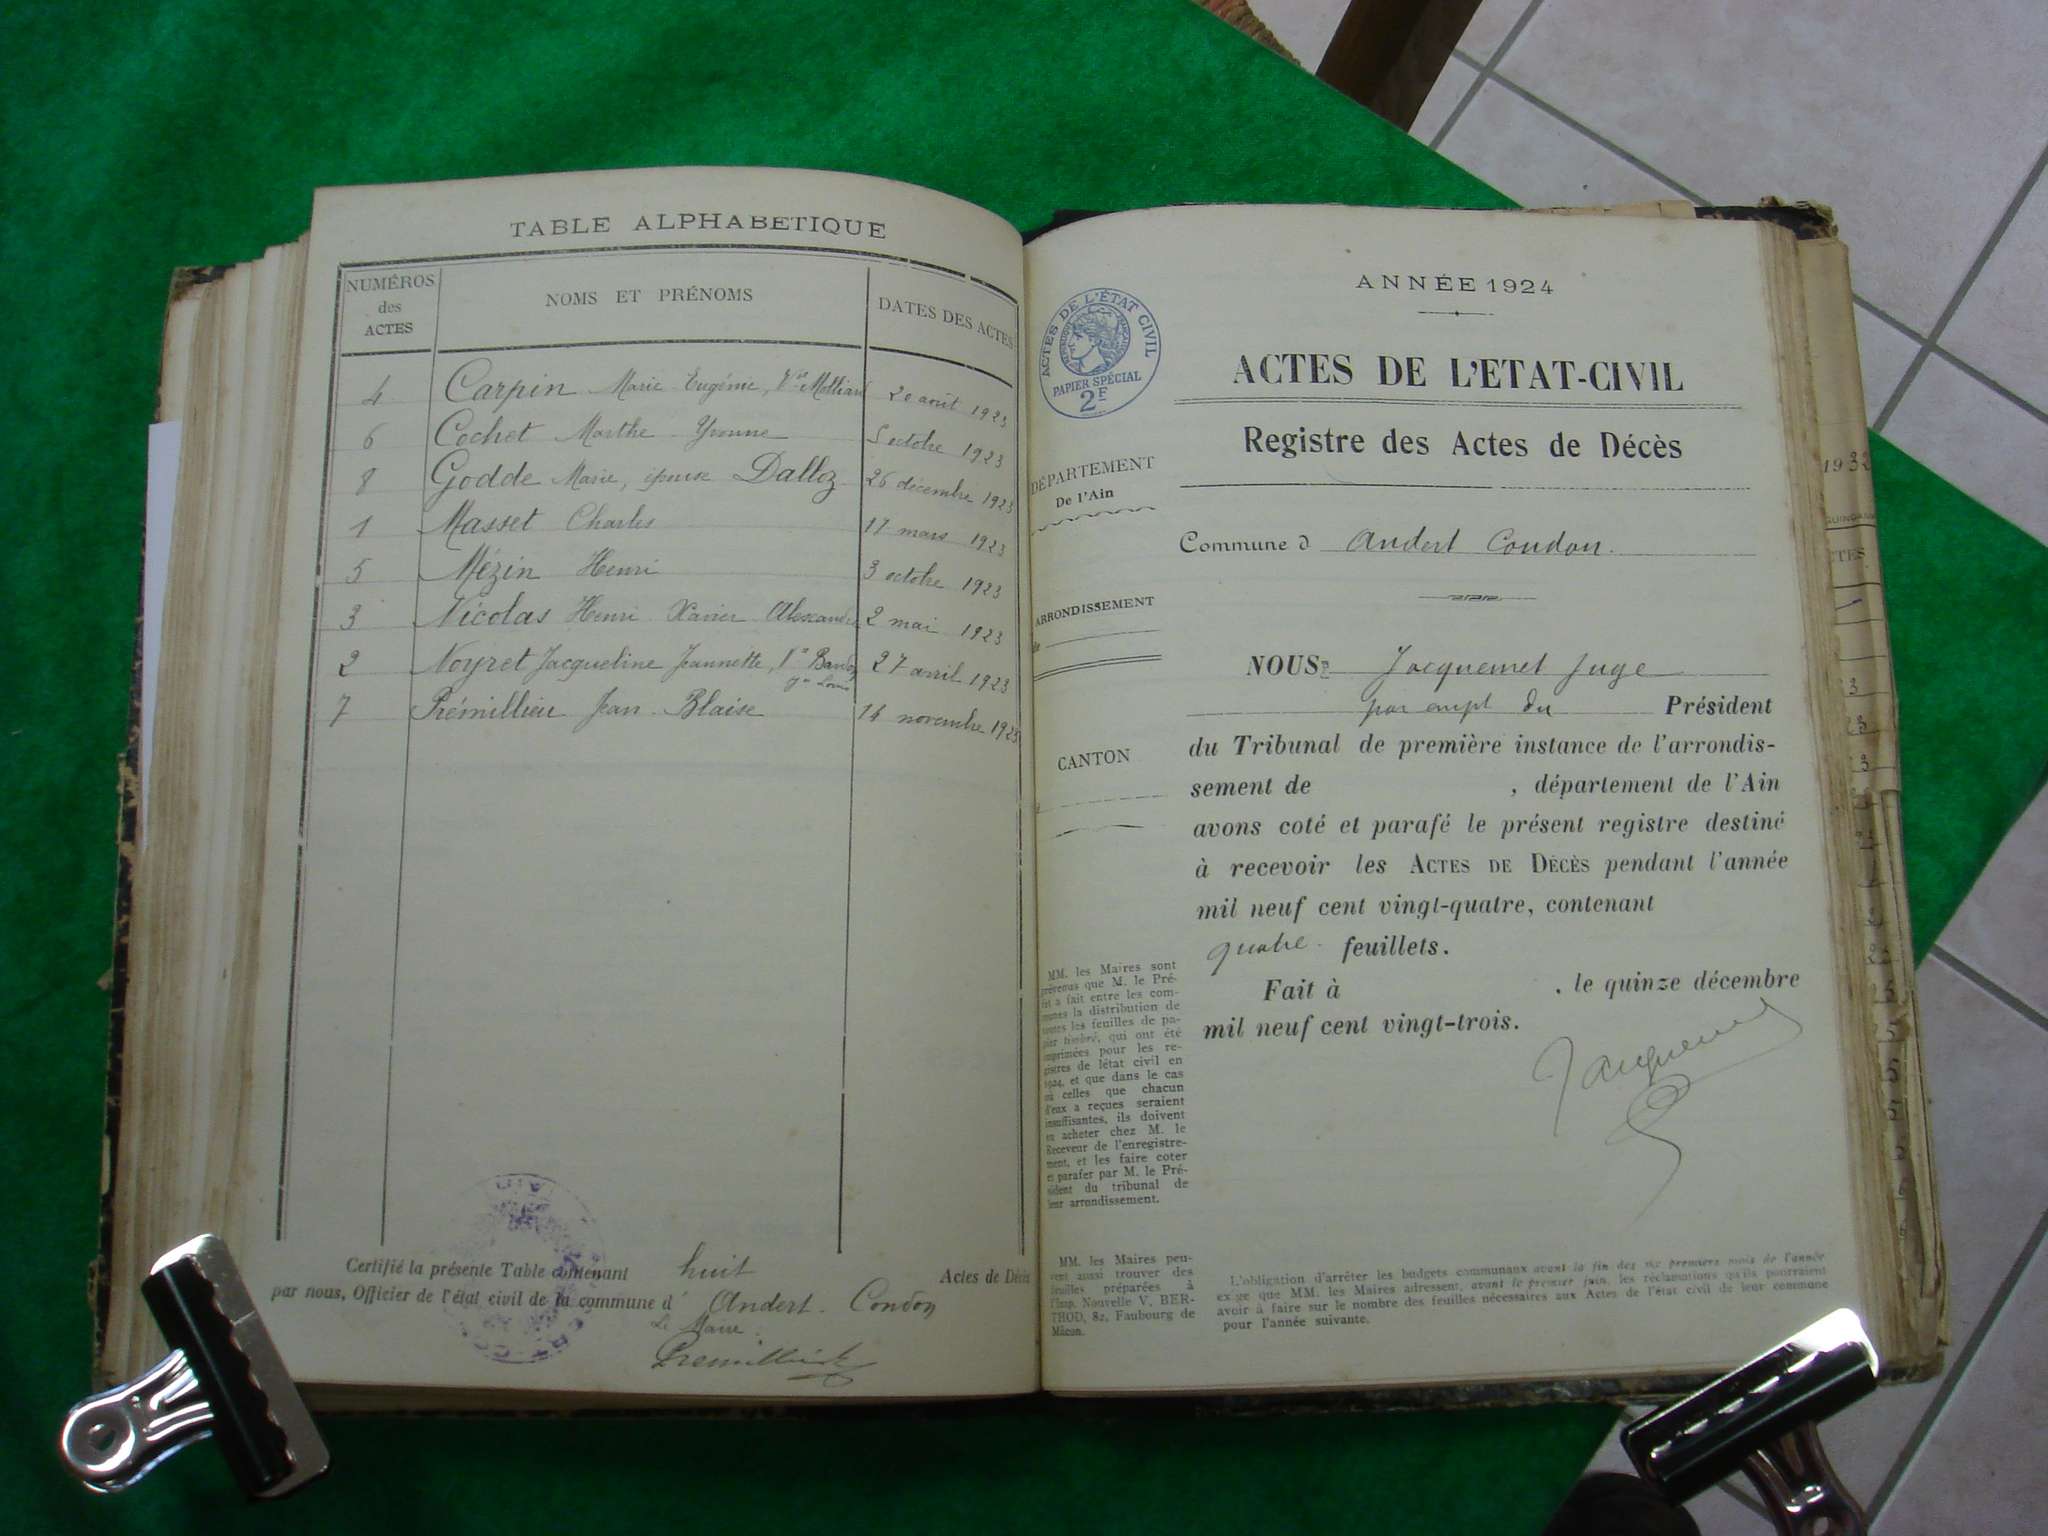 TABLE ALPHABETIQUE
NUMÉROS des ACTES
NOMS ET PRÉNOMS
DATES DES ACTES
4 Carpin Marie Eugénie, Vve Molliard 20 août 1923
6 Cochet Marthe Yvonne 5 octobre 1923
8 Godde Marie, épouse Dalloz 26 décembre 1923
1 Masset Charles 17 mars 1923
5 Mézin Henri 3 octobre 1923
3 Nicolas Henri Xavier Alexandre 2 mai 1923
2 Noyret Jacqueline Jeannette, 27 avril 1923
7 Prémillieu Jean Blaise 14 novembre 1923
Certifié la présente Table contenant huit Actes de Décès
par nous, Officier de l'état civil de la commune d' Andert-Condon
Le Maire
Premillieu
ANNÉE 1924
ACTES DE L'ÉTAT CIVIL
PAPIER SPÉCIAL
2F
ACTES DE L'ETAT-CIVIL
Registre des Actes de Décès
DÉPARTEMENT
De l'Ain
Commune d Andert Condon.
ARRONDISSEMENT
de
NOUS, Jacquemet Juge
par empt du Président
du Tribunal de première instance de l'arrondis-
CANTON
sement de , département de l'Ain
avons coté et parafé le présent registre destiné
à recevoir les ACTES DE DÉCÈS pendant l'année
mil neuf cent vingt-quatre, contenant
quatre feuillets.
Fait à , le quinze décembre
mil neuf cent vingt-trois.
Jacquemet
MM. les Maires sont
prévenus que M. le Pré-
fet a fait entre les com-
munes la distribution de
toutes les feuilles de pa-
pier timbré, qui ont été
imprimées pour les re-
gistres de létat civil en
1924, et que dans le cas
où celles que chacun
d'eux a reçues seraient
insuffisantes, ils doivent
en acheter chez M. le
Receveur de l'enregistre-
ment, et les faire coter
et parafer par M. le Pré-
sident du tribunal de
leur arrondissement.
MM. les Maires peu-
vent aussi trouver des
feuilles préparées à
l'Imp. Nouvelle V. BER-
THOD, 82, Faubourg de
Mâcon.
L'obligation d'arrêter les budgets communaux avant la fin des six premiers mois de l'année
exige que MM. les Maires adressent, avant le premier juin, les réclamations qu'ils pourraient
avoir à faire sur le nombre des feuilles nécessaires aux Actes de l'état civil de leur commune
pour l'année suivante.
1932